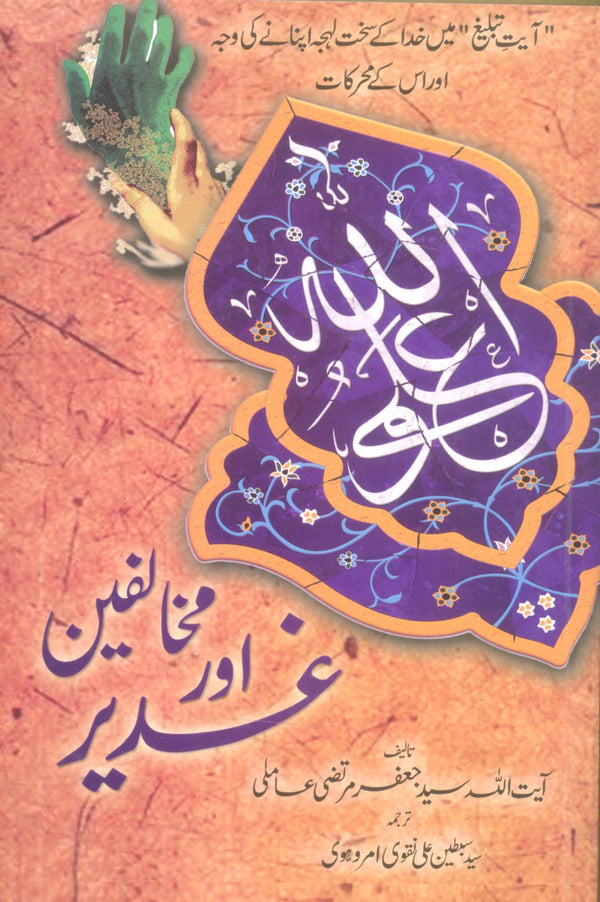 "آیتِ تبلیغ" میں خدا کے سخت لہجہ اپنانے کی وجہ
اور اس کے محرکات
غدیر
اور
مخالفین
تالیف
آیت اللہ سید جعفر مرتضیٰ عاملی
ترجمہ
سید سبطین علی نقوی امروہوی